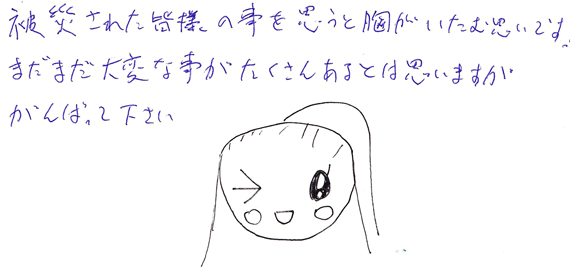 被災された皆様の事を思うと胸がいたむ思いです。
まだまだ大変な事がたくさんあるとは思いますが
がんばって下さい